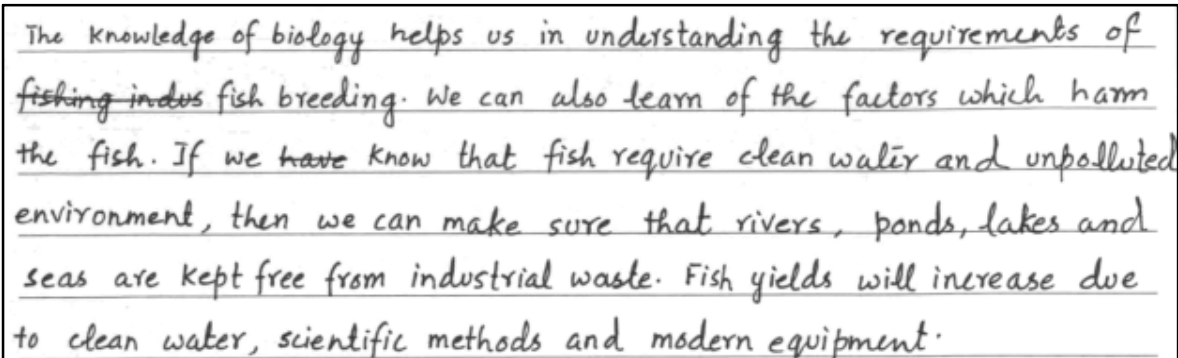 The knowledge of biology helps us in understanding the requirements of
fishing indus fish breeding. We can also learn of the factors which harm
the fish. If we have know that fish require clean water and unpolluted
environment, then we can make sure that rivers, ponds, lakes and
seas are kept free from industrial waste. Fish yields will increase due
to clean water, scientific methods and modern equipment.